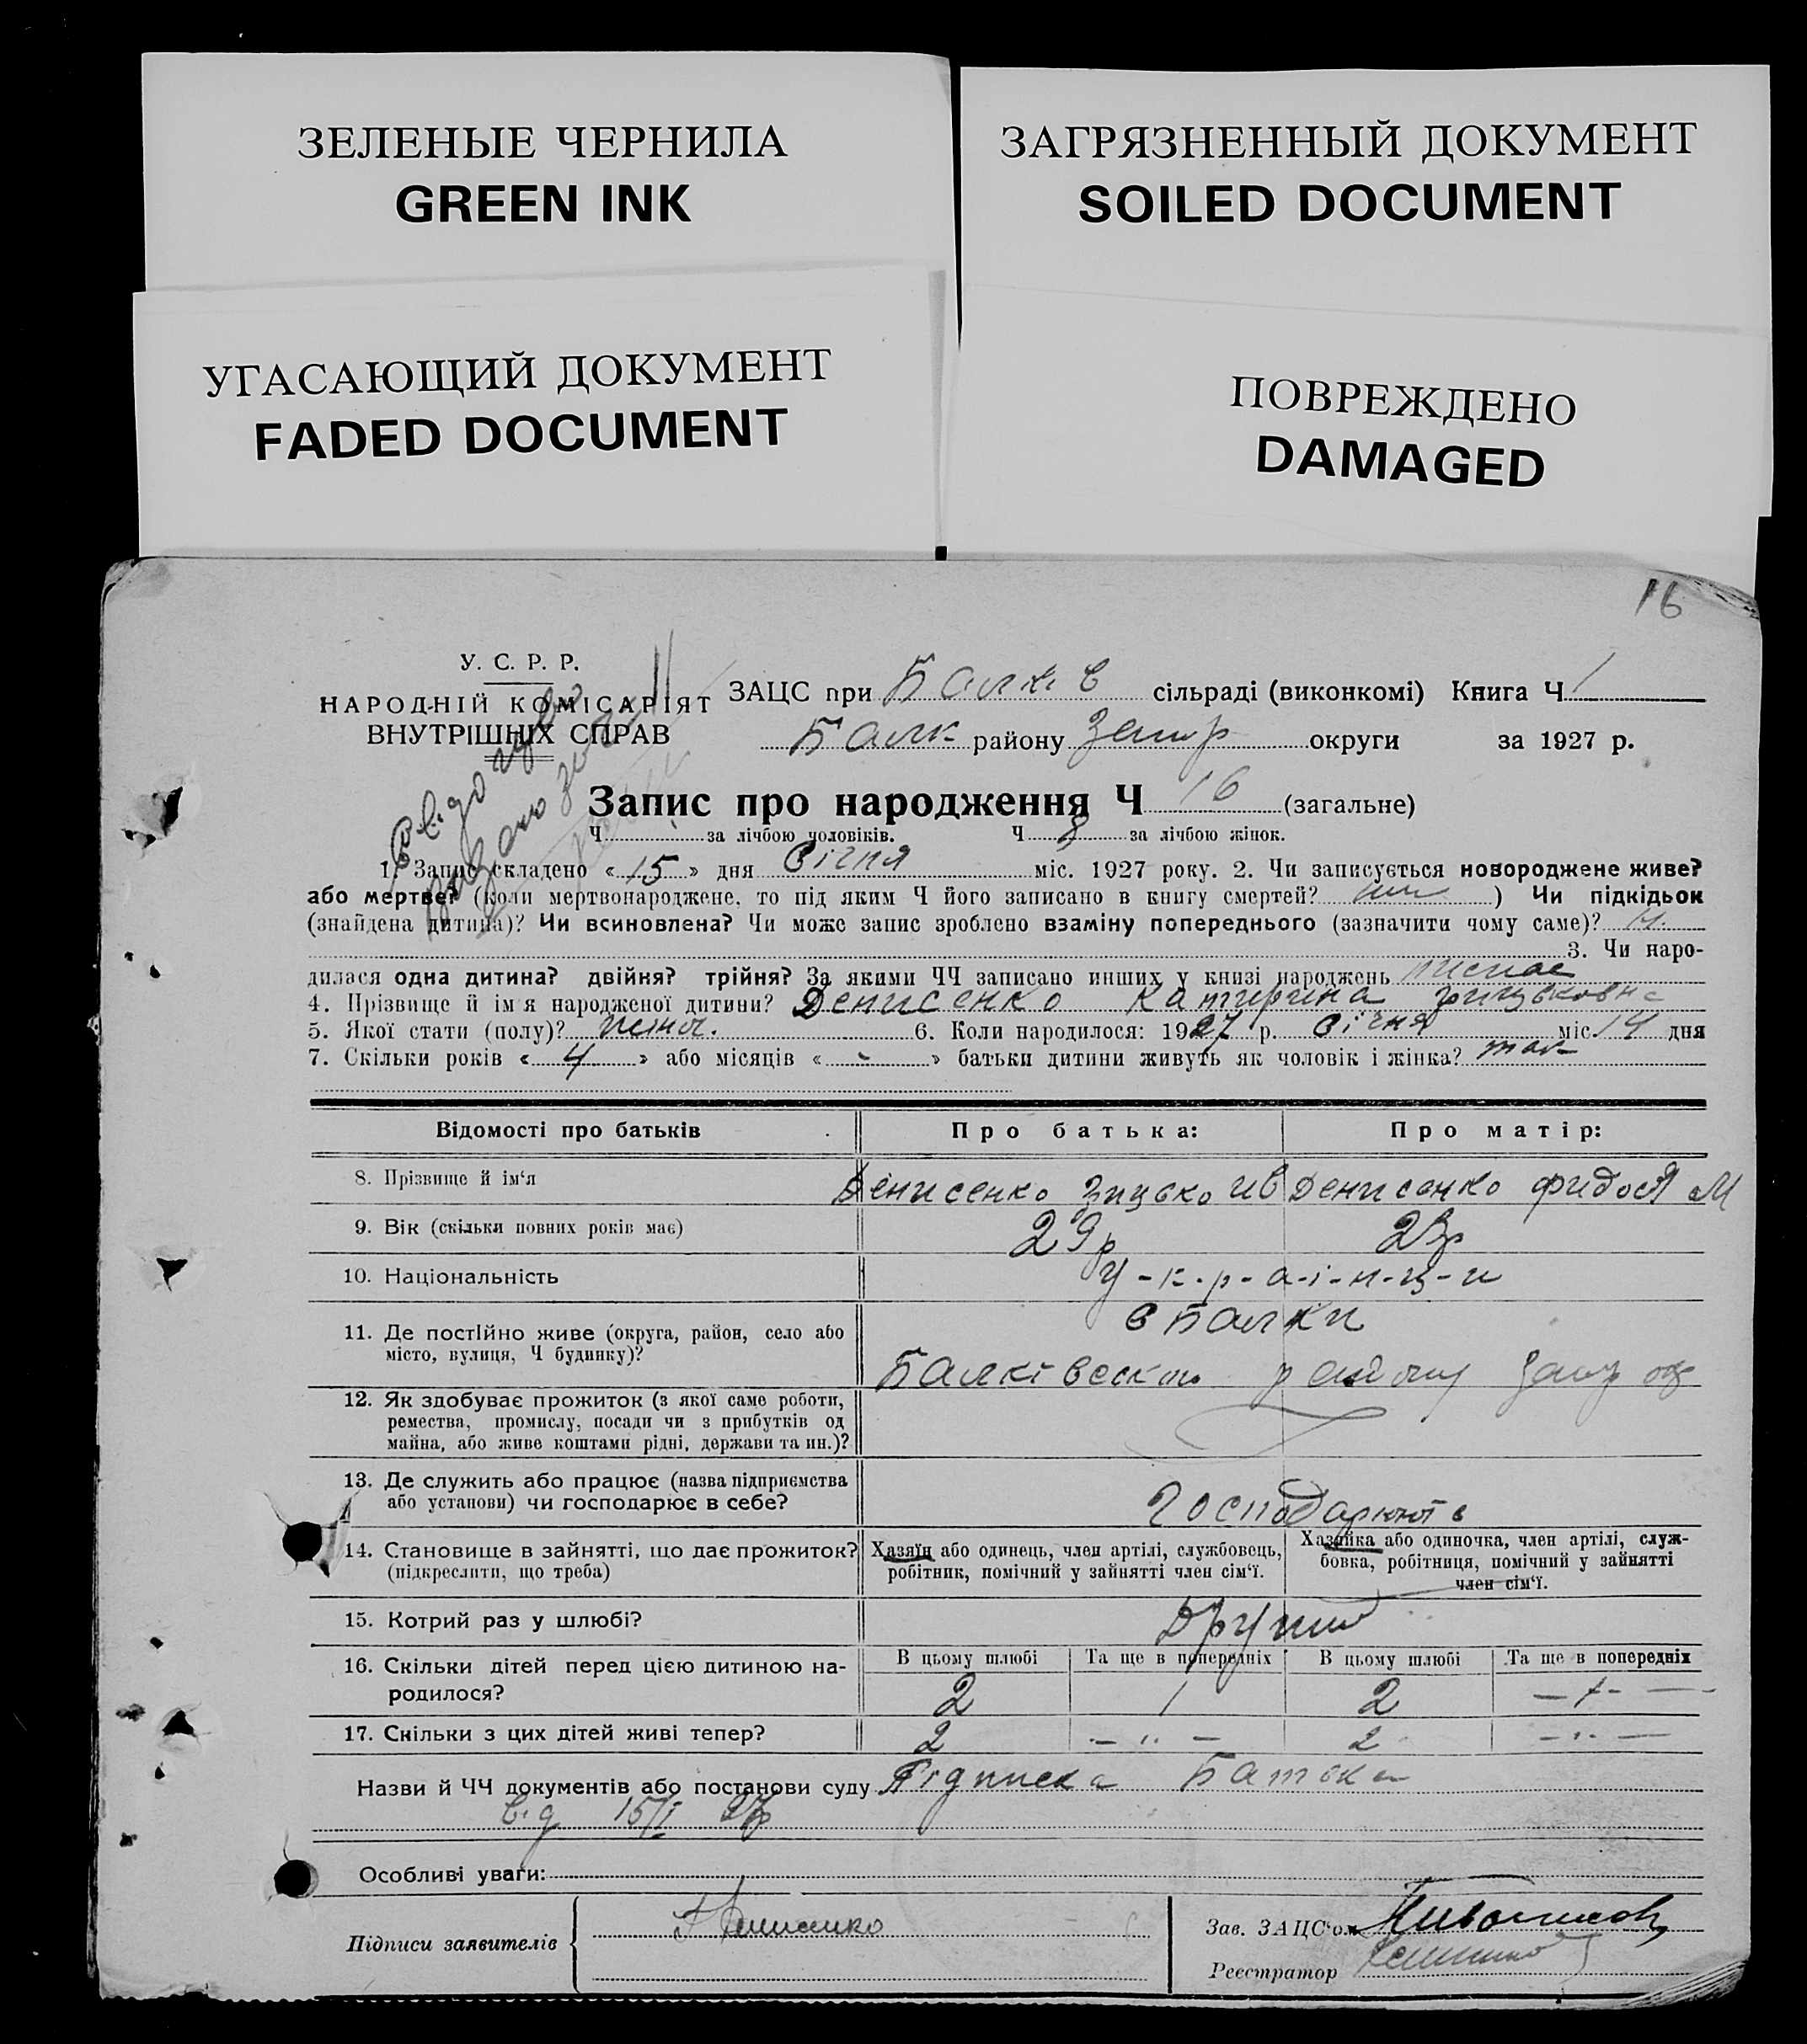 ЗЕЛЕНЫЕ ЧЕРНИЛА
GREEN INK
ЗАГРЯЗНЕННЫЙ ДОКУМЕНТ
SOILED DOCUMENT
УГАСАЮЩИЙ ДОКУМЕНТ
FADED DOCUMENT
ПОВРЕЖДЕНО
DAMAGED
16
У. С. Р. Р.
НАРОДНІЙ КОМІСАРІЯТ
ВНУТРІШНІХ СПРАВ
ЗАЦС при Балків сільраді (виконкомі) Книга Ч 1
Балк району Запр округи за 1927 р.
Запис про народження Ч 16 (загальне)
Ч за лічбою чоловіків. Ч 8 за лічбою жінок.
1. Запис складено « 15 » дня Січня міс. 1927 року. 2. Чи записується новороджене живе?
або мертве? (коли мертвонароджене, то під яким Ч його записано в книгу смертей? ) Чи підкідьок
(знайдена дитина)? Чи всиновлена? Чи може запис зроблено взаміну попереднього (зазначити чому саме)?
3. Чи наро-
дилася одна дитина? двійня? трійня? За якими ЧЧ записано инших у книзі народжень
4. Прізвище й ім'я народженої дитини? Денисенко Катирина
5. Якої стати (полу)? жіноч. 6. Коли народилося: 1927 р. Січня міс. 14 дня
7. Скільки років « 4 » або місяців « - » батьки дитини живуть як чоловік і жінка? так
Відомості про батьків Про батька: Про матір:
8. Прізвище й ім'я Денисенко Грицько Ив Денисенко Фидося М
9. Вік (скільки повних років має) 29р 23р
10. Національність У-к-р-а-і-н-ц-и
11. Де постійно живе (округа, район, село або
місто, вулиця, Ч будинку)?
с Балки
Балківськ району Запр ок
12. Як здобуває прожиток (з якої саме роботи,
ремества, промислу, посади чи з прибутків од
майна, або живе коштами рідні, держави та ин.)?
13. Де служить або працює (назва підприємства
або установи) чи господарює в себе?
Господарюють
14. Становище в зайнятті, що дає прожиток?
(підкреслити, що треба)
Хазяїн або одинець, член артілі, службовець,
робітник, помічний у зайнятті член сім'ї.
Хазяйка або одиночка, член артілі, служ-
бовка, робітниця, помічний у зайнятті
член сім'ї.
15. Котрий раз у шлюбі? Другий
16. Скільки дітей перед цією дитиною на-
родилося?
В цьому шлюбі Та ще в попередніх В цьому шлюбі Та ще в попередніх
2 1 2
17. Скільки з цих дітей живі тепер? 2 - " - 2 - " -
Назви й ЧЧ документів або постанови суду Підписка Батька
від 15/I 27р
Особливі уваги:
Підписи заявителів Г Денисенко
Зав. ЗАЦС'ом
Реєстратор